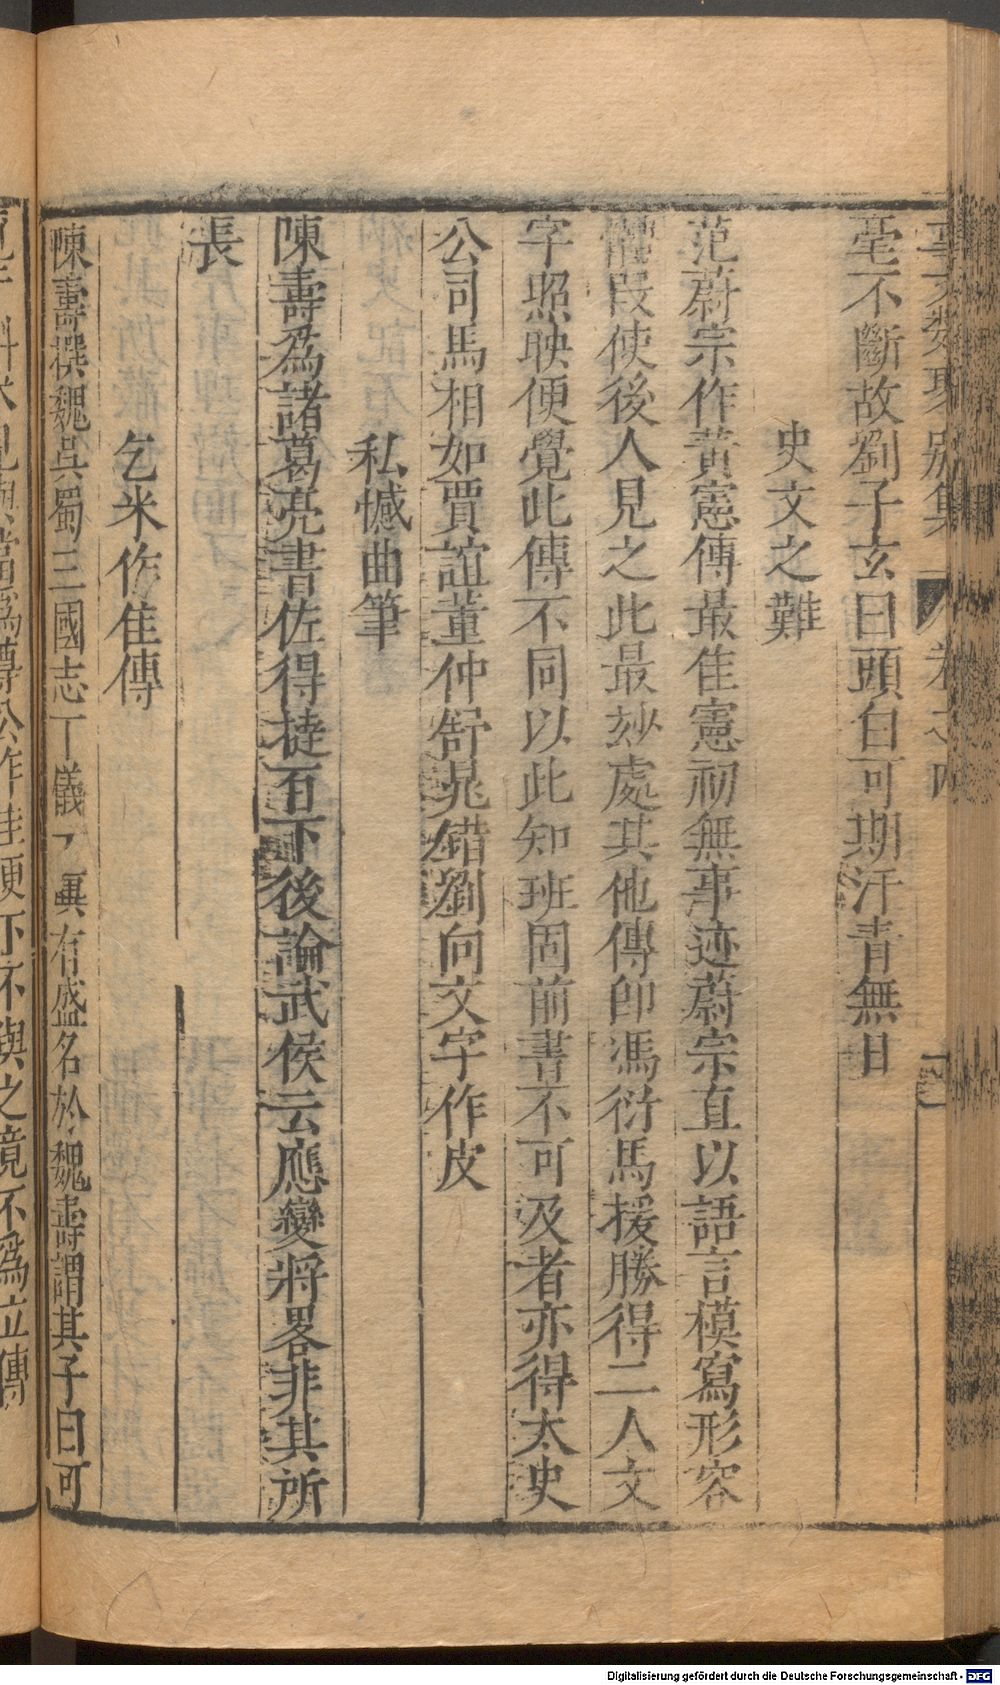 事文類聚別集 卷之四
毫不斷故劉子玄曰頭白可期汗青無日
史文之難
范蔚宗作黃憲傳最佳憲初無事迹蔚宗直以語言模寫形容
體段使後人見之此最妙處其他傳即馮衍馬援勝得二人文
字照映便覺此傳不同以此知班固前書不可及者亦得太史
公司馬相如賈誼董仲舒晁錯劉向文字作皮
私憾曲筆
陳壽為諸葛亮書佐得撻百下後論武侯云應變將畧非其所
長
乞米作佳傳
陳壽撰魏吳蜀三國志丁儀丁廙有盛名於魏壽謂其子曰可
斛米見與當為尊公作佳便不與之竟不為立傳
Digitalisierung gefördert durch die Deutsche Forschungsgemeinschaft - DFG